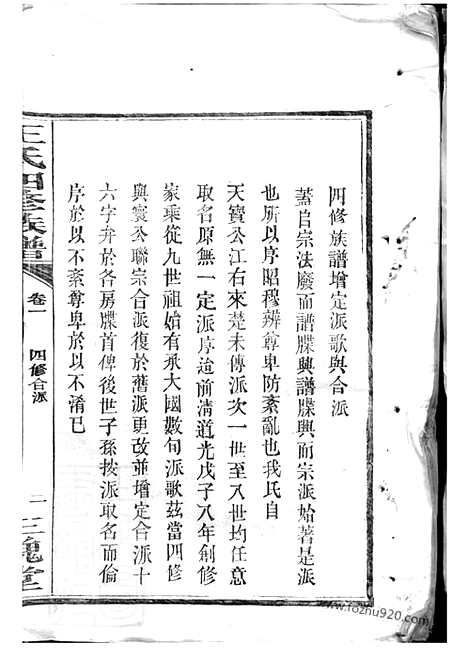 四修族譜增定派歌與合派
蓋自宗法廢而譜牒興譜牒興而宗派始著是派
也所以序昭穆辨尊卑防紊亂也我氏自
天寶公江右來楚未傳派次一世至八世均任意
取名原無一定派序迨前清道光戊子八年創修
家乘從九世祖始有承大國數句派歌茲當四修
與寶公聯宗合派復於舊派更改並增定合派十
六字弁於各房牒首俾後世子孫按派取名而倫
序於以不紊尊卑於以不淆已
王氏四修族譜
卷一
四修合派
三槐堂
www.fozhu920.com